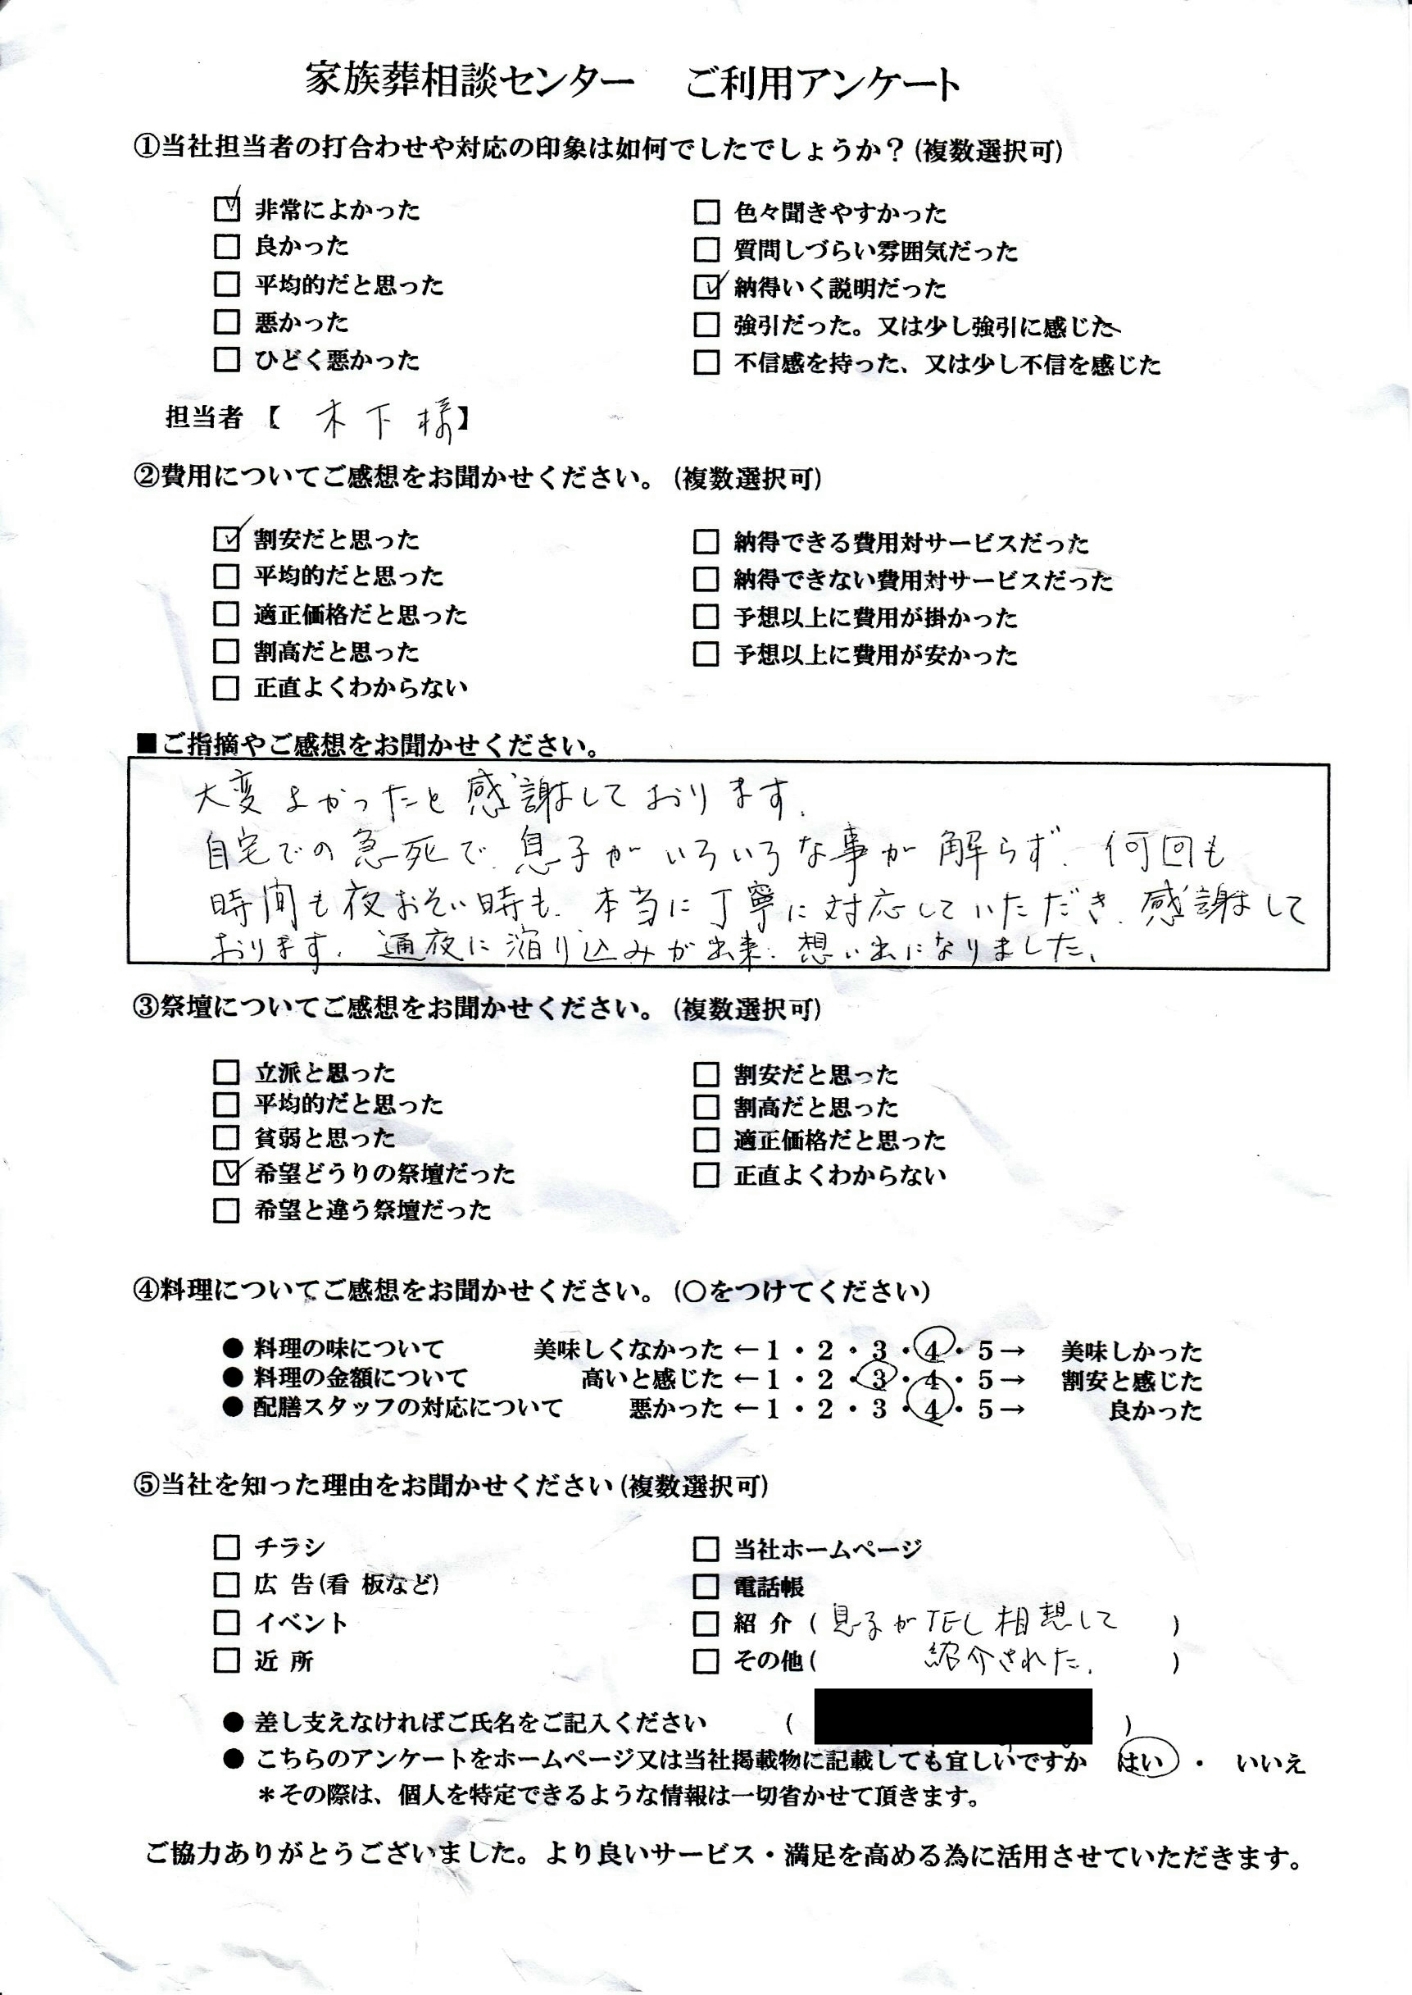 家族葬相談センター　ご利用アンケート
①当社担当者の打合わせや対応の印象は如何でしたでしょうか？(複数選択可)
☑ 非常によかった　□ 色々聞きやすかった
□ 良かった　□ 質問しづらい雰囲気だった
□ 平均的だと思った　☑ 納得いく説明だった
□ 悪かった　□ 強引だった。又は少し強引に感じた
□ ひどく悪かった　□ 不信感を持った、又は少し不信を感じた
担当者【 木下様】
②費用についてご感想をお聞かせください。(複数選択可)
☑ 割安だと思った　□ 納得できる費用対サービスだった
□ 平均的だと思った　□ 納得できない費用対サービスだった
□ 適正価格だと思った　□ 予想以上に費用が掛かった
□ 割高だと思った　□ 予想以上に費用が安かった
□ 正直よくわからない
■ご指摘やご感想をお聞かせください。
大変よかったと感謝しております。
自宅での急死で、息子がいろいろな事が解らず、何回も
時間も夜おそい時も、本当に丁寧に対応していただき、感謝して
おります。通夜に泊り込みが出来、想い出になりました。
③祭壇についてご感想をお聞かせください。(複数選択可)
□ 立派と思った　□ 割安だと思った
□ 平均的だと思った　□ 割高だと思った
□ 貧弱と思った　□ 適正価格だと思った
☑ 希望どうりの祭壇だった　□ 正直よくわからない
□ 希望と違う祭壇だった
④料理についてご感想をお聞かせください。(○をつけてください)
● 料理の味について　美味しくなかった ←1・2・3・4・5→ 美味しかった
● 料理の金額について　高いと感じた ←1・2・3・4・5→ 割安と感じた
● 配膳スタッフの対応について　悪かった ←1・2・3・4・5→ 良かった
⑤当社を知った理由をお聞かせください(複数選択可)
□ チラシ　□ 当社ホームページ
□ 広 告(看 板など)　□ 電話帳
□ イベント　□ 紹 介 ( 息子がTEL相想して )
□ 近 所　□ その他( 紹介された。 )
● 差し支えなければご氏名をご記入ください ( )
● こちらのアンケートをホームページ又は当社掲載物に記載しても宜しいですか　はい ・ いいえ
＊その際は、個人を特定できるような情報は一切省かせて頂きます。
ご協力ありがとうございました。より良いサービス・満足を高める為に活用させていただきます。